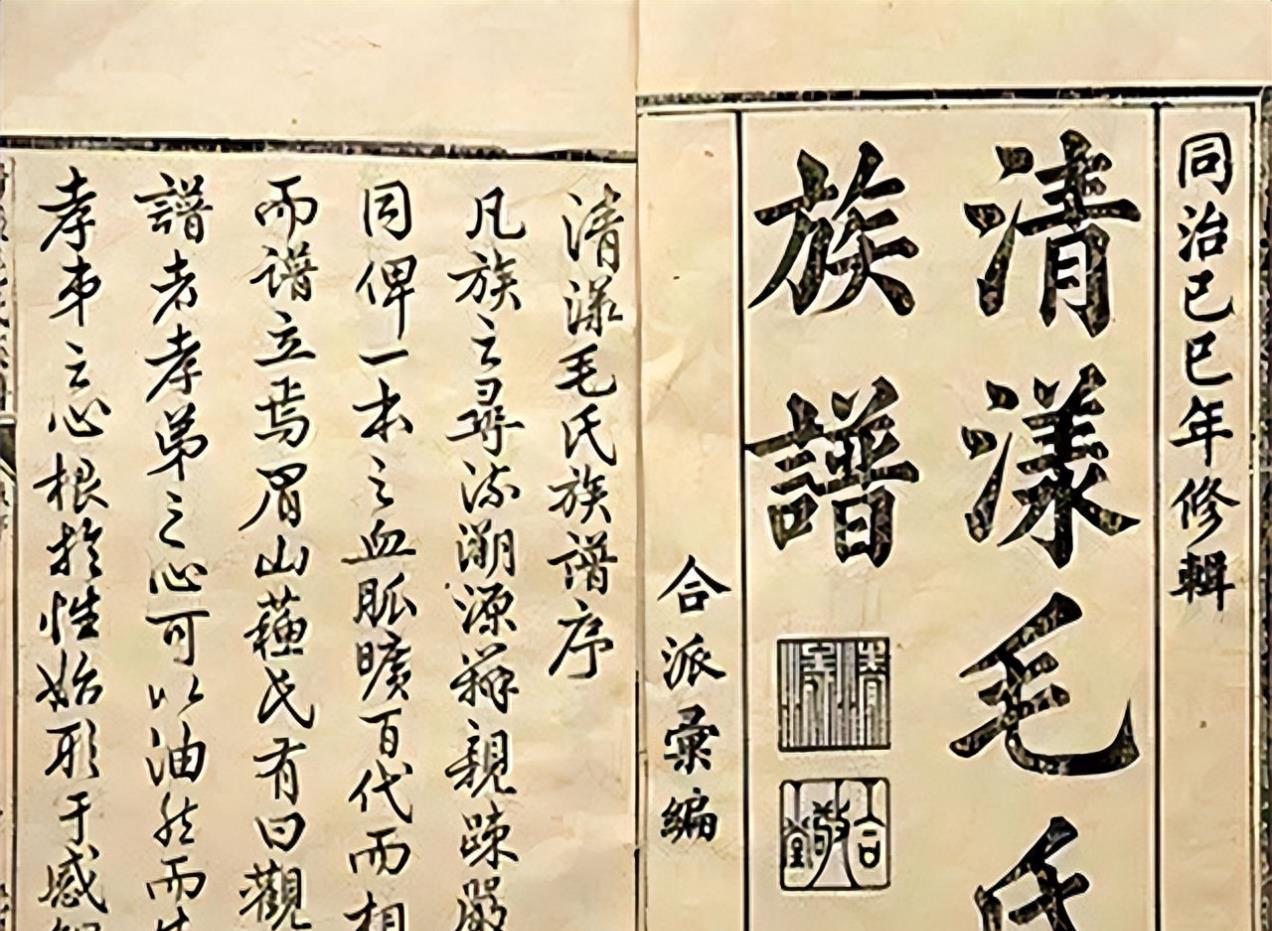 同治己巳年修輯
清漾毛氏
族譜
合派彙編
清漾毛氏族譜序
凡族之尋流溯源辨親疎嚴
同俾一本之血脈曠百代而相
而譜立焉眉山蘓氏有曰觀
譜者孝弟之心可以油然而生
孝弟之心根於性始形于感